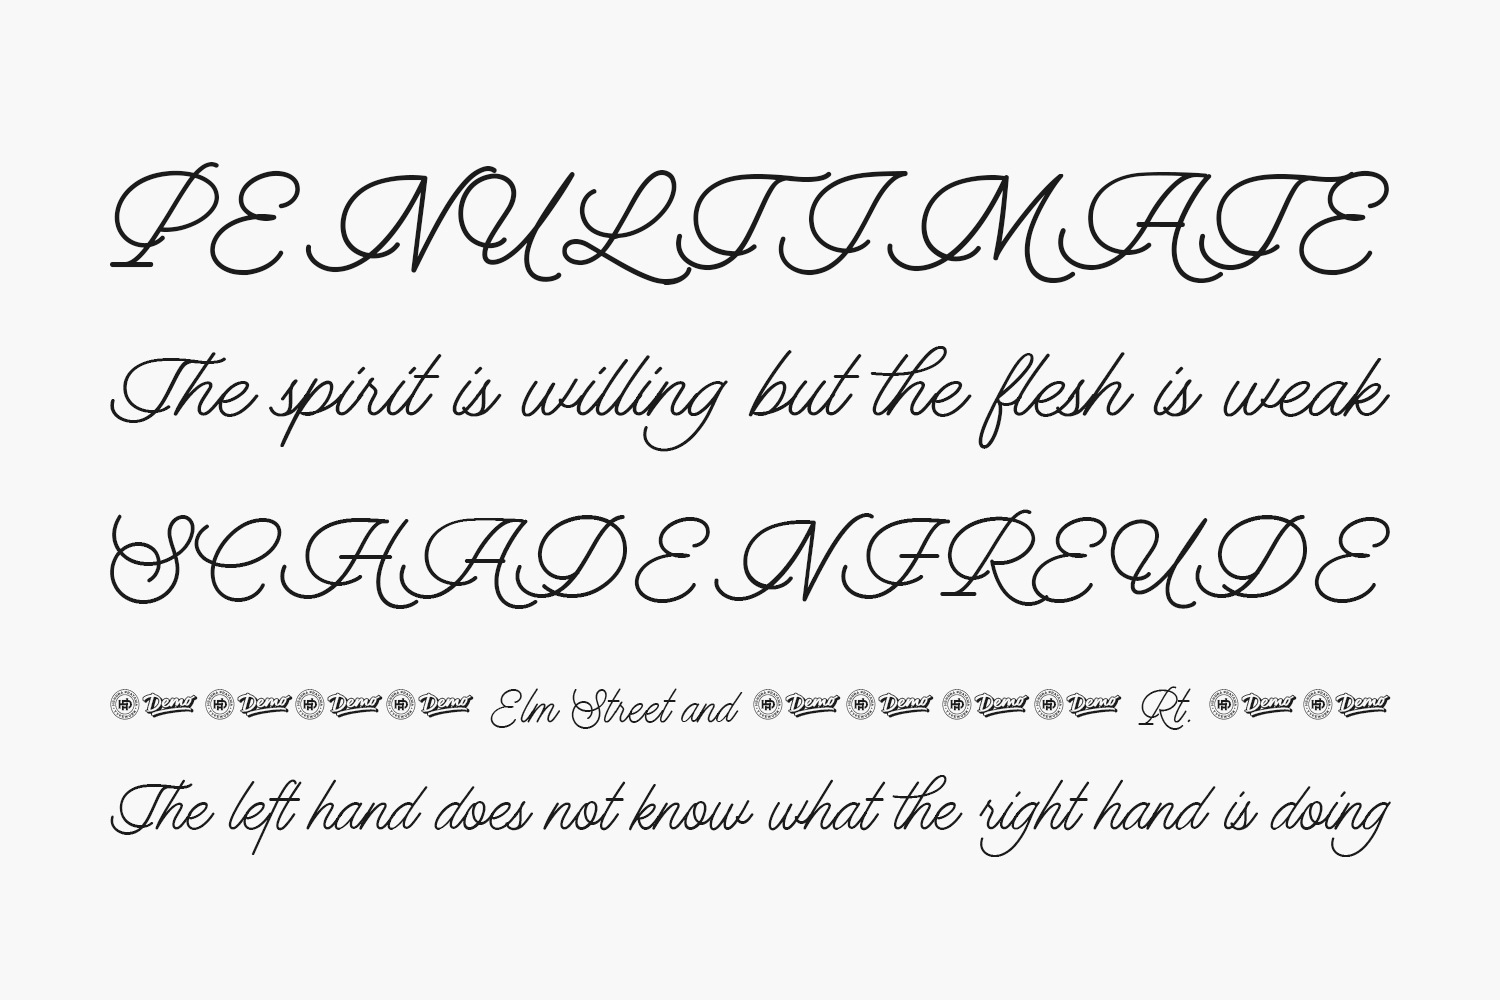 PENULTIMATE
The spirit is willing but the flesh is weak
SCHADENFREUDE
Demo Demo Demo Demo Elm Street and Demo Demo Demo Demo Rt. Demo Demo
The left hand does not know what the right hand is doing